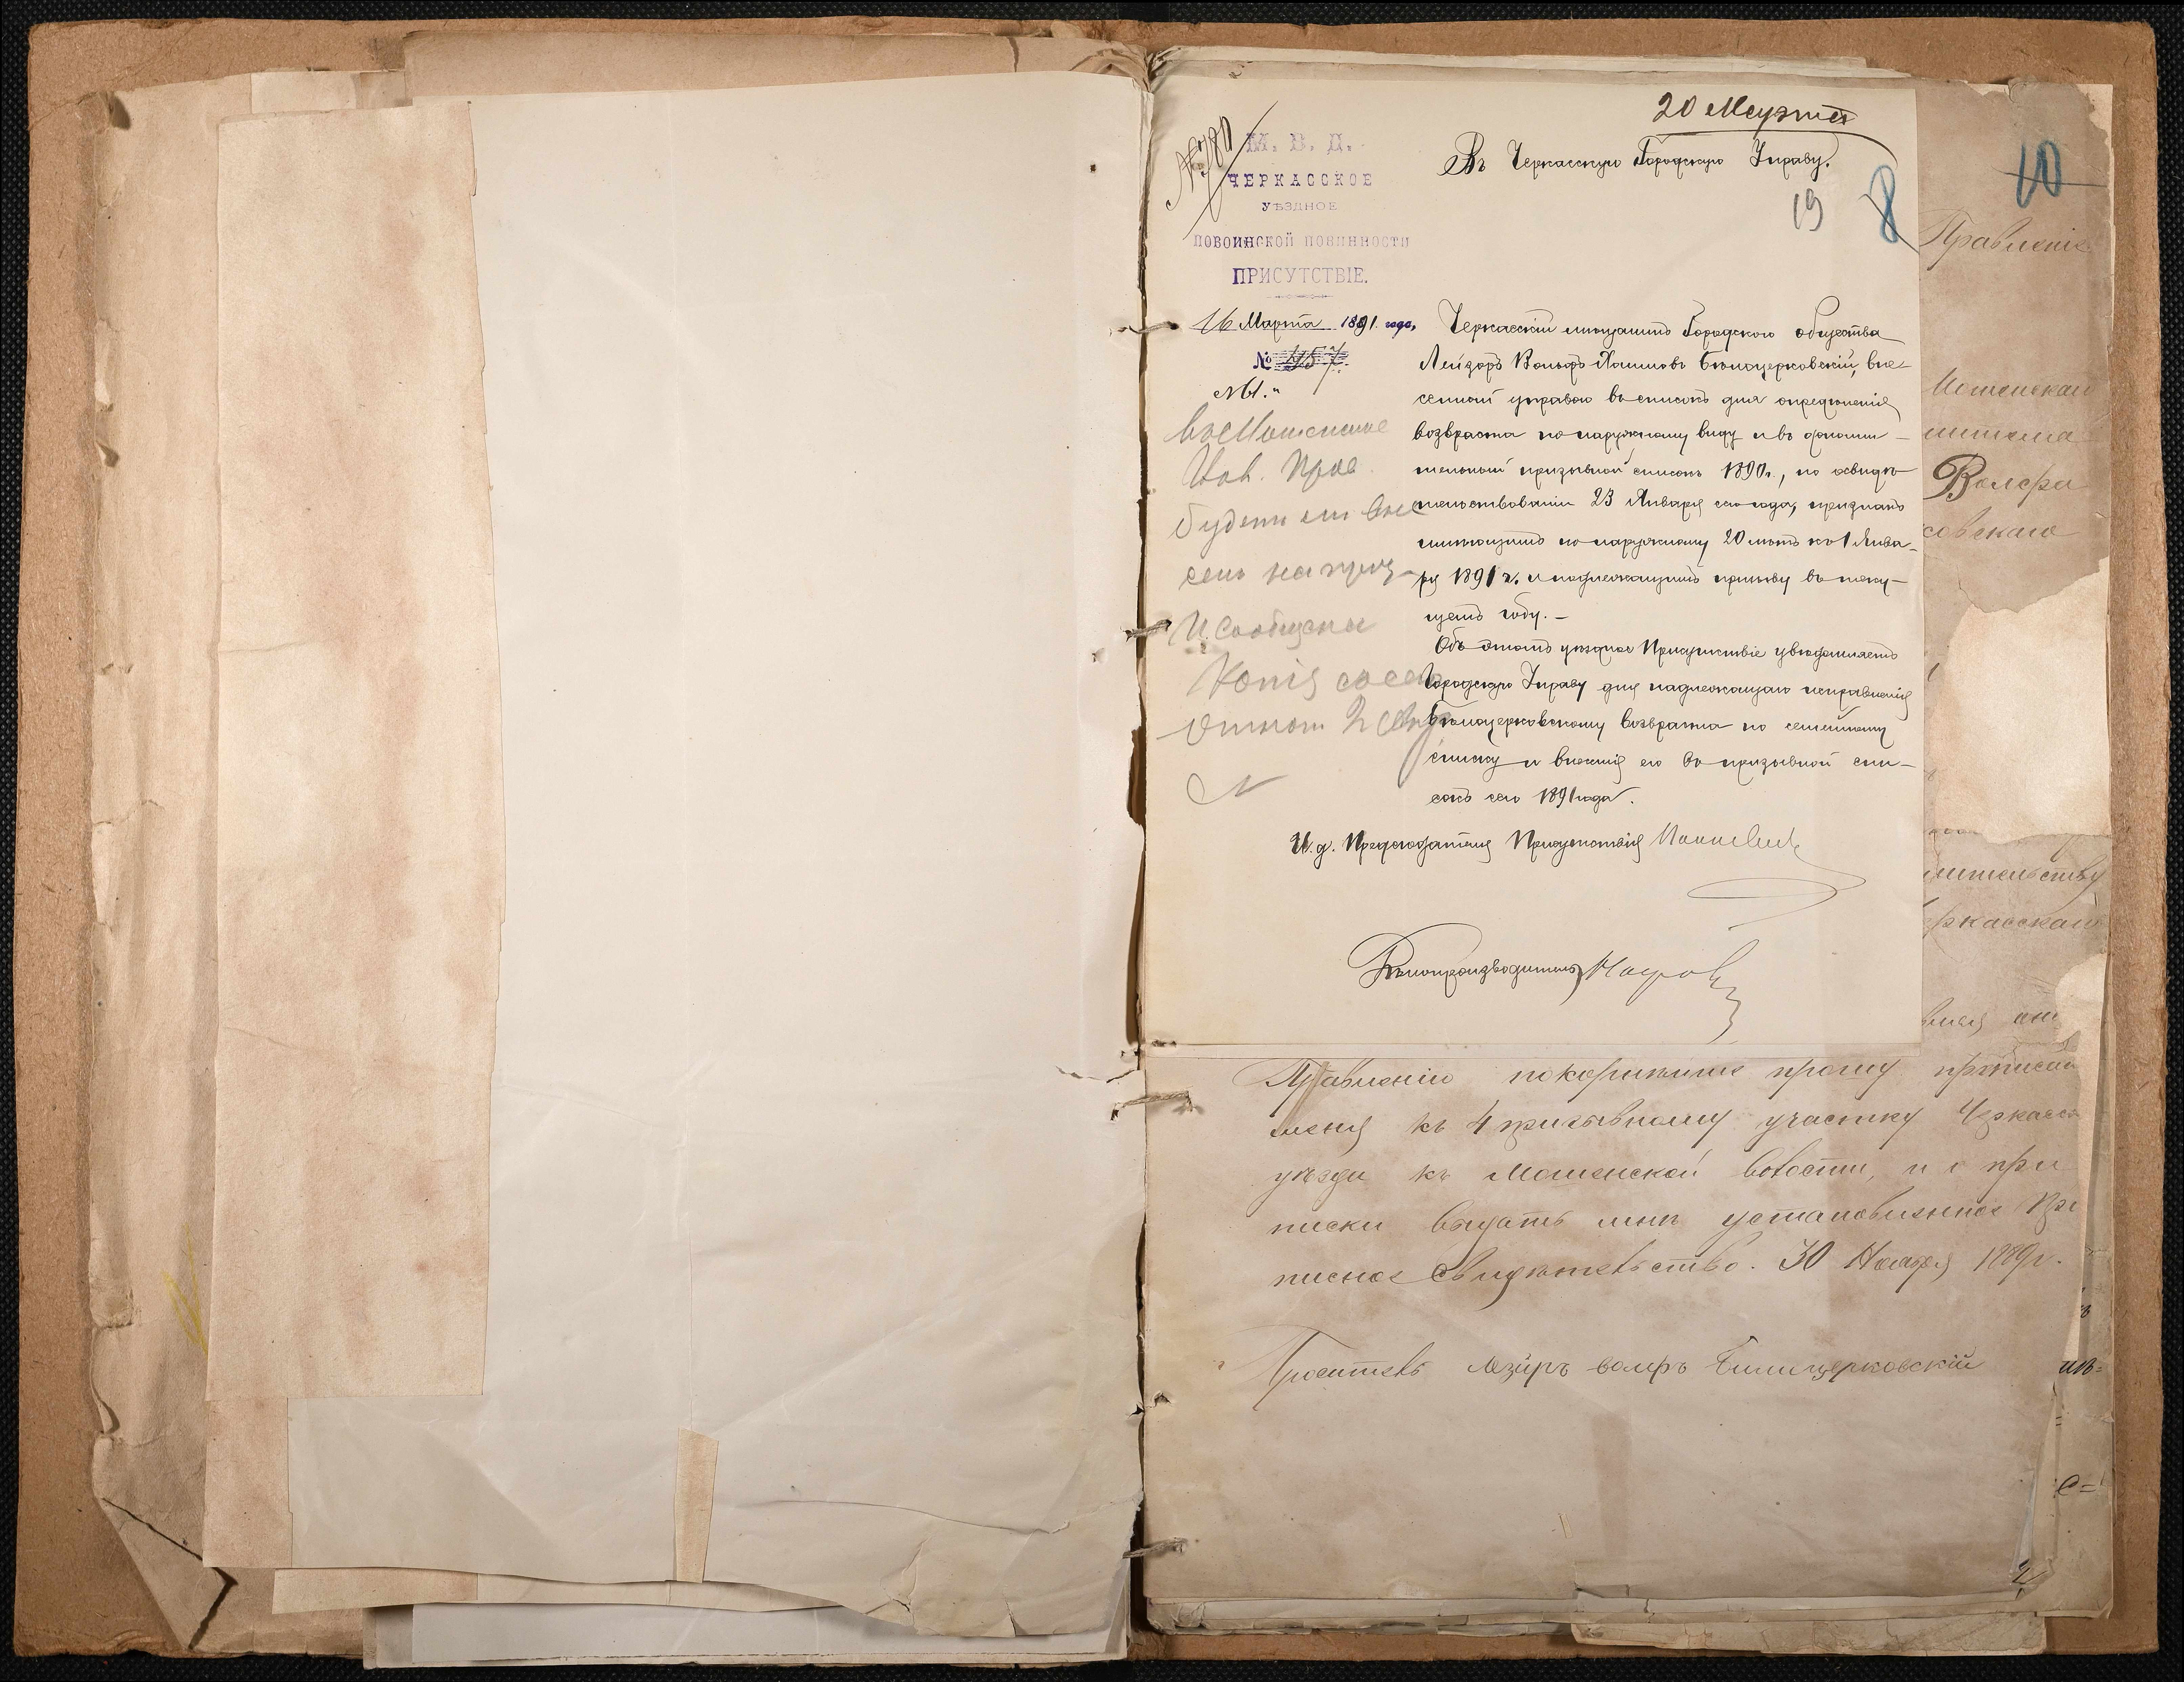 20 Марта
Въ Черкасскую Городскую Управу.
19
8
10
М. В. Д.
ЧЕРКАССКОЕ
УѢЗДНОЕ
ПОВОИНСКОЙ ПОВИННОСТИ
ПРИСУТСТВІЕ.
16 Марта 1891 года,
№ 457.
Черкасскій мещанинъ Городского общества
Лейзоръ Вольфъ Хаимовъ Бѣлоцерковскій, вне-
сенный управою въ списокъ для опредѣленія
возвраста по наружному виду и въ дополни-
тельный призывной списокъ 1890 г., по освидѣ-
тельствованіи 23 Января сего года, признанъ
имѣющимъ по наружному 20 лѣтъ къ 1 Янва-
ря 1891 г. и подлежащимъ призыву въ теку-
щемъ году. -
Объ этомъ уѣздное Присутствіе увѣдомляетъ
Городскую Управу для надлежащаго исправленія
Бѣлоцерковскому возвраста по семейному
списку и внесенія его въ призывной спи-
сокъ сего 1891 года.
И. д. Предсѣдателя Присутствія
Дѣлопроизводитель
будетъ ли вне
сенъ на приз
И сообщено
Копія
Правленіе
Мошенской
Волфа
ркасскаго
Правленію покорнѣйше прошу приписать
меня къ 4 призывному участку Черкасск
уѣзда къ Мошенской волости, и о при
писки выдать мнѣ установленное При
писное свидѣтельство. 30 Ноября 1889 г.
Проситель Лезиръ волфъ Билицерковскій